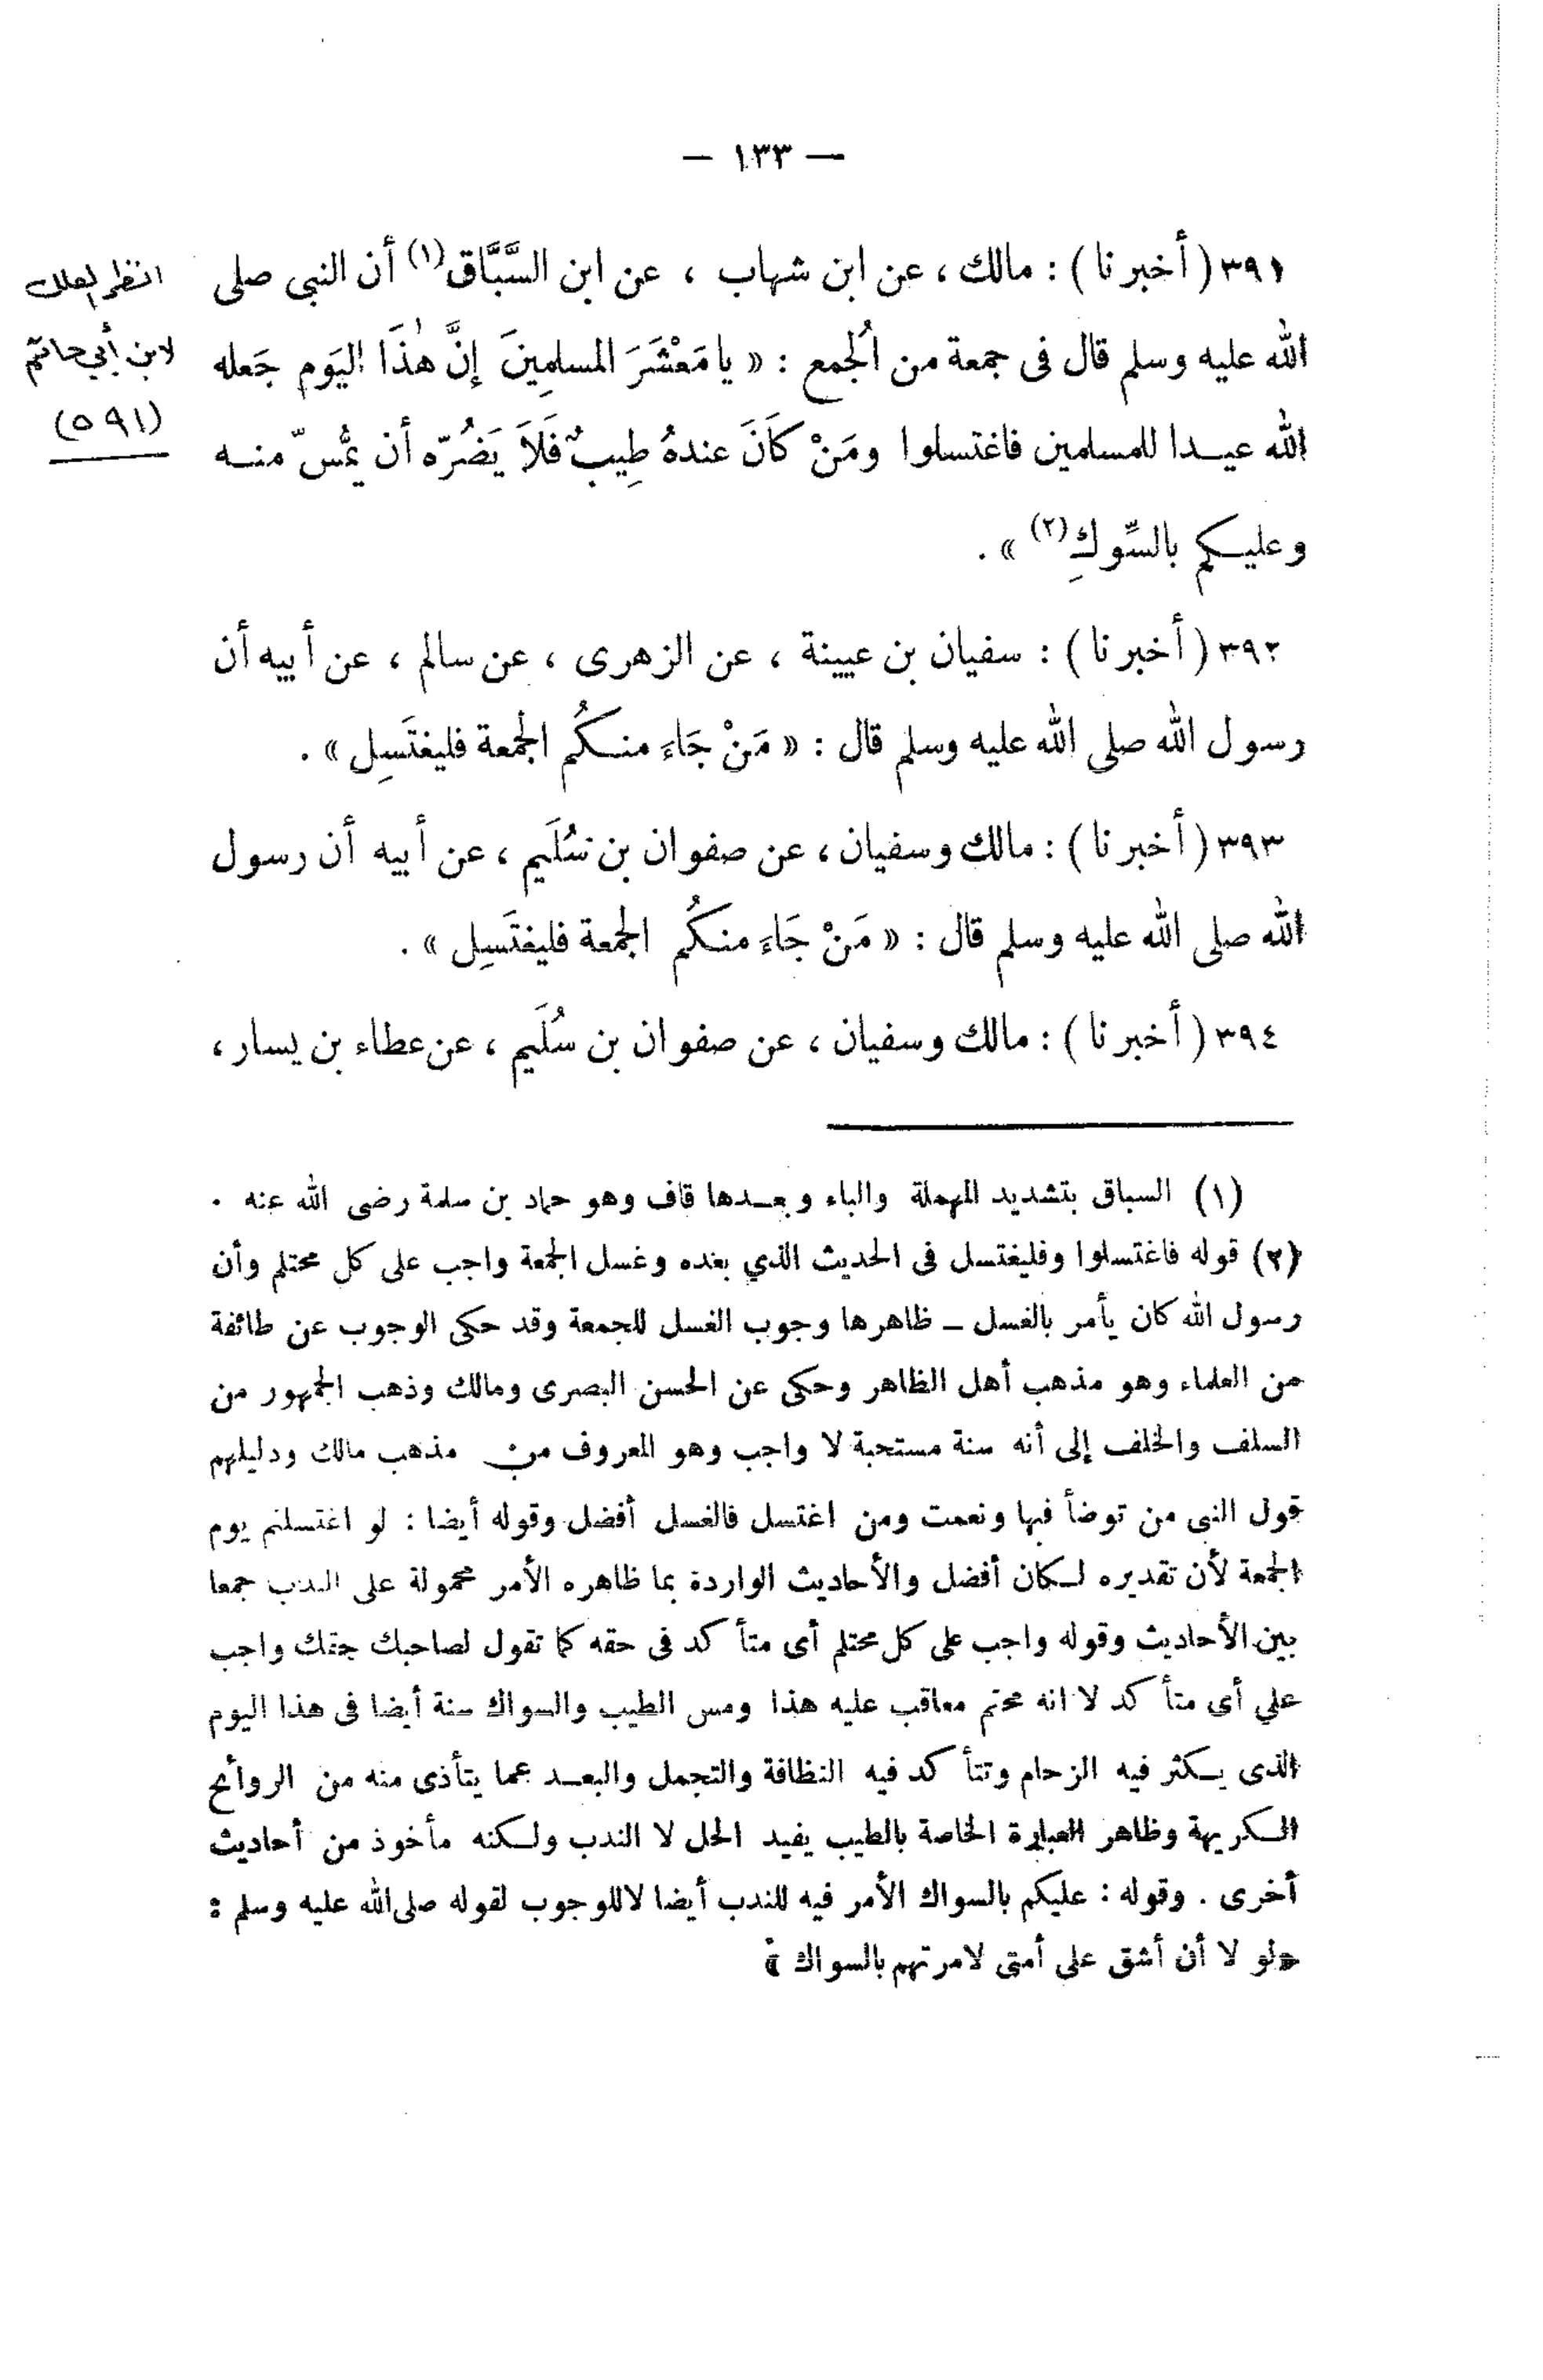 — ١٣٣ —
٣٩١ ( أخبرنا ) : مالك ، عن ابن شهاب ، عن ابن السَّبَّاق(١) أن النبى صلى
الله عليه وسلم قال فى جمعة من الُجمع : « يا مَعْشَرَ المسلمِينَ إنَّ هٰذَا اليَوم جَعله
الله عيـدا للمسلمين فاغتسلوا ومَنْ كَانَ عندهُ طِيبٌ فَلاَ يَضُرّه أن يمُسّ منـه
وعليـكم بالسِّوكِ(٢) » .
انظر العلل
لابن أبي حاتم
(٥٩١)
٣٩٢ ( أخبرنا ) : سفيان بن عيينة ، عن الزهرى ، عن سالم ، عن أبيه أن
رسول الله صلى الله عليه وسلم قال : « مَنْ جَاءَ منـكُم الجمعة فليغتَسِل » .
٣٩٣ ( أخبرنا ) : مالك وسفيان ، عن صفوان بن سُلَيم ، عن أبيه أن رسول
الله صلى الله عليه وسلم قال : « مَنْ جَاءَ منكُم الجمعة فليغتَسِل » .
٣٩٤ ( أخبرنا ) : مالك وسفيان ، عن صفوان بن سُلَيم ، عن عطاء بن يسار ،
(١) السباق بتشديد المهملة والباء وبعـدها قاف وهو حماد بن سلمة رضى الله عنه .
(٢) قوله فاغتسلوا وفليغتسل فى الحديث الذي بعده وغسل الجمعة واجب على كل محتلم وأن
رسول الله كان يأمر بالغسل ــ ظاهرها وجوب الغسل للجمعة وقد حكى الوجوب عن طائفة
من العلماء وهو مذهب أهل الظاهر وحكى عن الحسن البصرى ومالك وذهب الجمهور من
السلف والخلف إلى أنه سنة مستحبة لا واجب وهو المعروف من مذهب مالك ودليلهم
قول النبى من توضأ فبها ونعمت ومن اغتسل فالغسل أفضل وقوله أيضا : لو اغتسلتم يوم
الجمعة لأن تقديره لـكان أفضل والأحاديث الواردة بما ظاهره الأمر محمولة على الندب جمعا
بين الأحاديث وقوله واجب على كل محتلم أى متأكد فى حقه كما تقول لصاحبك حقك واجب
علي أى متأكد لا انه محتم معاقب عليه هذا ومس الطيب والسواك سنة أيضا فى هذا اليوم
الذى يـكثر فيه الزحام وتتأكد فيه النظافة والتجمل والبعـد عما يتأذى منه من الروائح
الـكريهة وظاهر العبارة الخاصة بالطيب يفيد الحل لا الندب ولـكنه مأخوذ من أحاديث
أخرى . وقوله : عليكم بالسواك الأمر فيه للندب أيضا لا للوجوب لقوله صلى الله عليه وسلم :
«لو لا أن أشق على أمتى لامرتهم بالسواك »